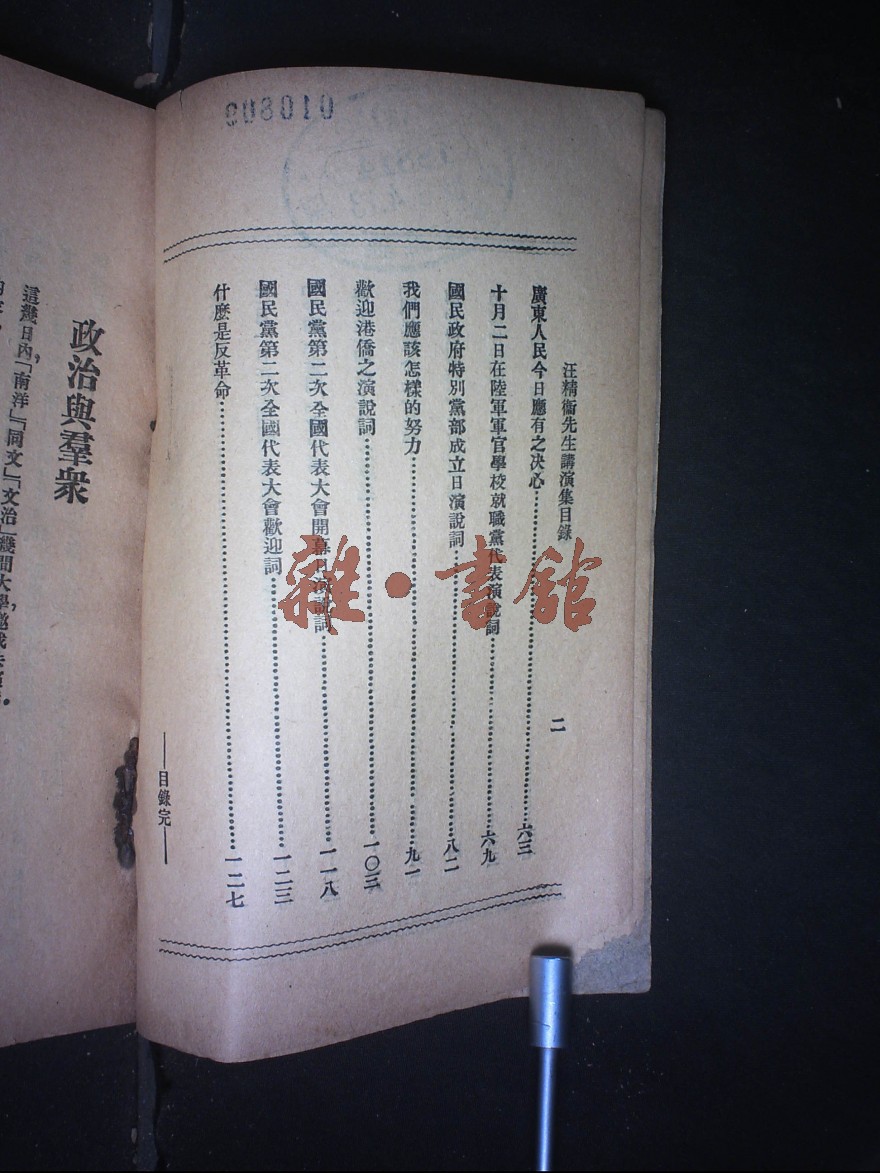 010809
汪精衞先生講演集目錄
二
廣東人民今日應有之決心……六三
十月二日在陸軍軍官學校就職黨代表演說詞……六九
國民政府特別黨部成立日演說詞……八二
我們應該怎樣的努力……九一
歡迎港僑之演說詞……一〇三
國民黨第二次全國代表大會開幕日演說詞……一一八
國民黨第二次全國代表大會歡迎詞……一二三
什麼是反革命……一二七
——目錄完——
政治與羣衆
這幾日內，「南洋」「同文」「文治」幾間大學
雜·書館